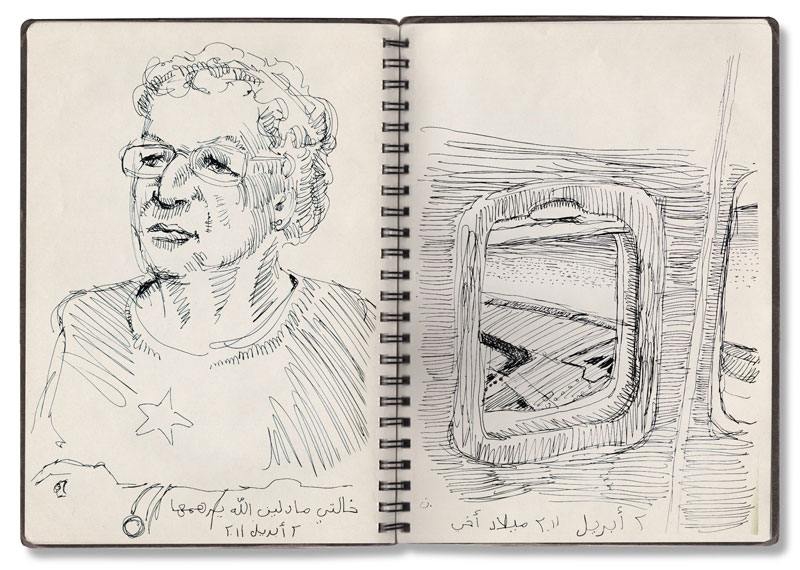 ٢ أبريل ٢٠١١ ميلاد أخي
خالتي مادلين الله يرحمها
٢ أبريل ٢٠١١